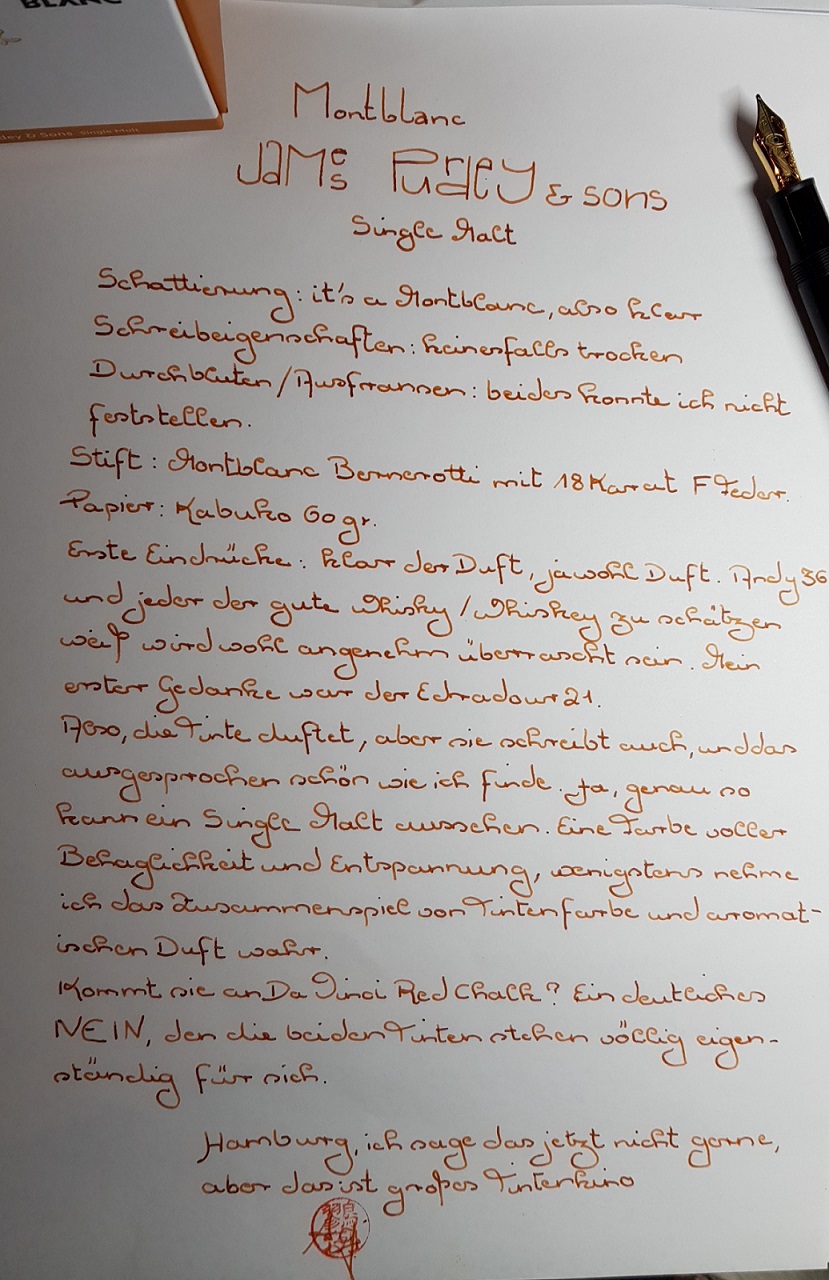 BLANC
dey & Sons Single Malt
Montblanc
James Purdey & sons
Single Malt
Schattierung: it's a Montblanc, also klar
Schreibeigenschaften: keinesfalls trocken
Durchbluten/Ausfransen: beides konnte ich nicht
feststellen.
Stift: Montblanc Bernerotti mit 18 Karat F Feder.
Papier: Kabuko 60gr.
Erste Eindrücke: klar der Duft, jawohl Duft. Andy36
und jeder der gute Whisky/Whiskey zu schätzen
weiß wird wohl angenehm überrascht sein. Mein
erster Gedanke war der Edradour 21.
Also, die Tinte duftet, aber sie schreibt auch, und das
ausgesprochen schön wie ich finde. Ja, genau so
kann ein Single Malt aussehen. Eine Farbe voller
Behaglichkeit und Entspannung, wenigstens nehme
ich das Zusammenspiel von Tintenfarbe und aromat-
ischen Duft wahr.
Kommt sie an Da Vinci Red Chalk? Ein deutliches
NEIN, den die beiden Tinten stehen völlig eigen-
ständig für sich.
Hamburg, ich sage das jetzt nicht gerne,
aber das ist großes Tintenkino